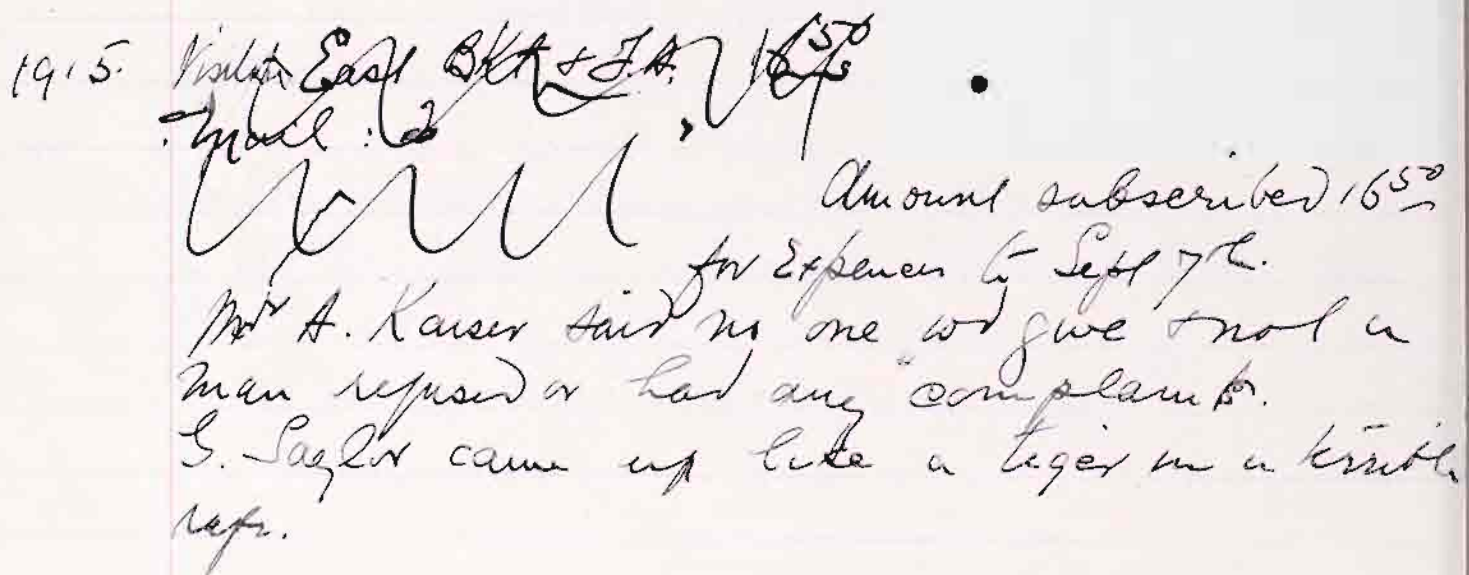 1915. Visited East & F.A. 16 50
Mail :
Amount subscribed 16 50
for Expences to Sept 7th.
Mr A. Kaiser said no one wd give & not a
man refused or had any complaints.
G. Saylor came up like a tiger in a terrible
rage.